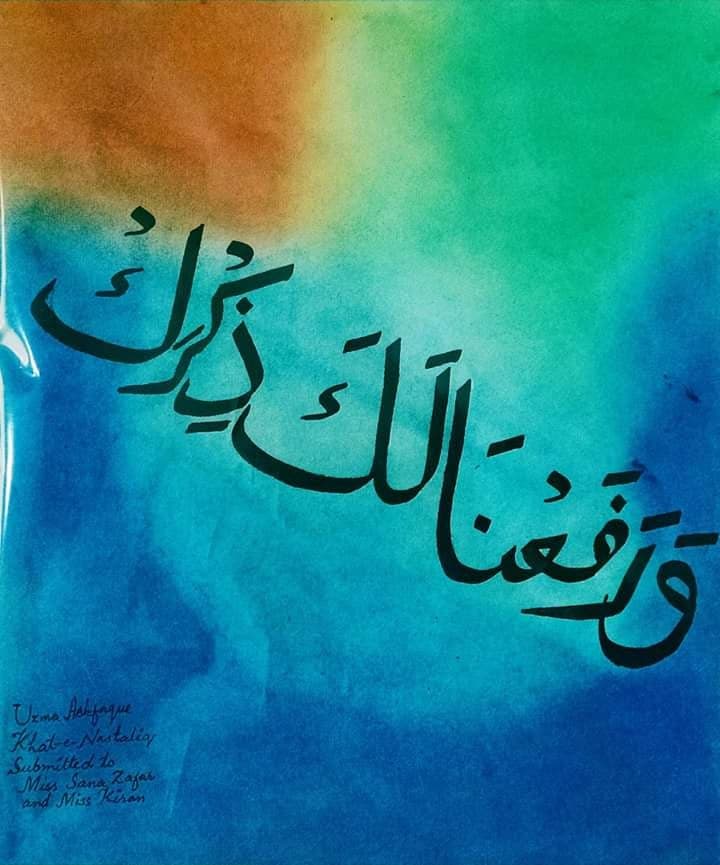 وَرَفَعْنَا لَكَ ذِكْرَكْ
Uzma Ashfaque
Khat-e-Nastaliq
Submitted to
Miss Sana Zafar
and Miss Kiran